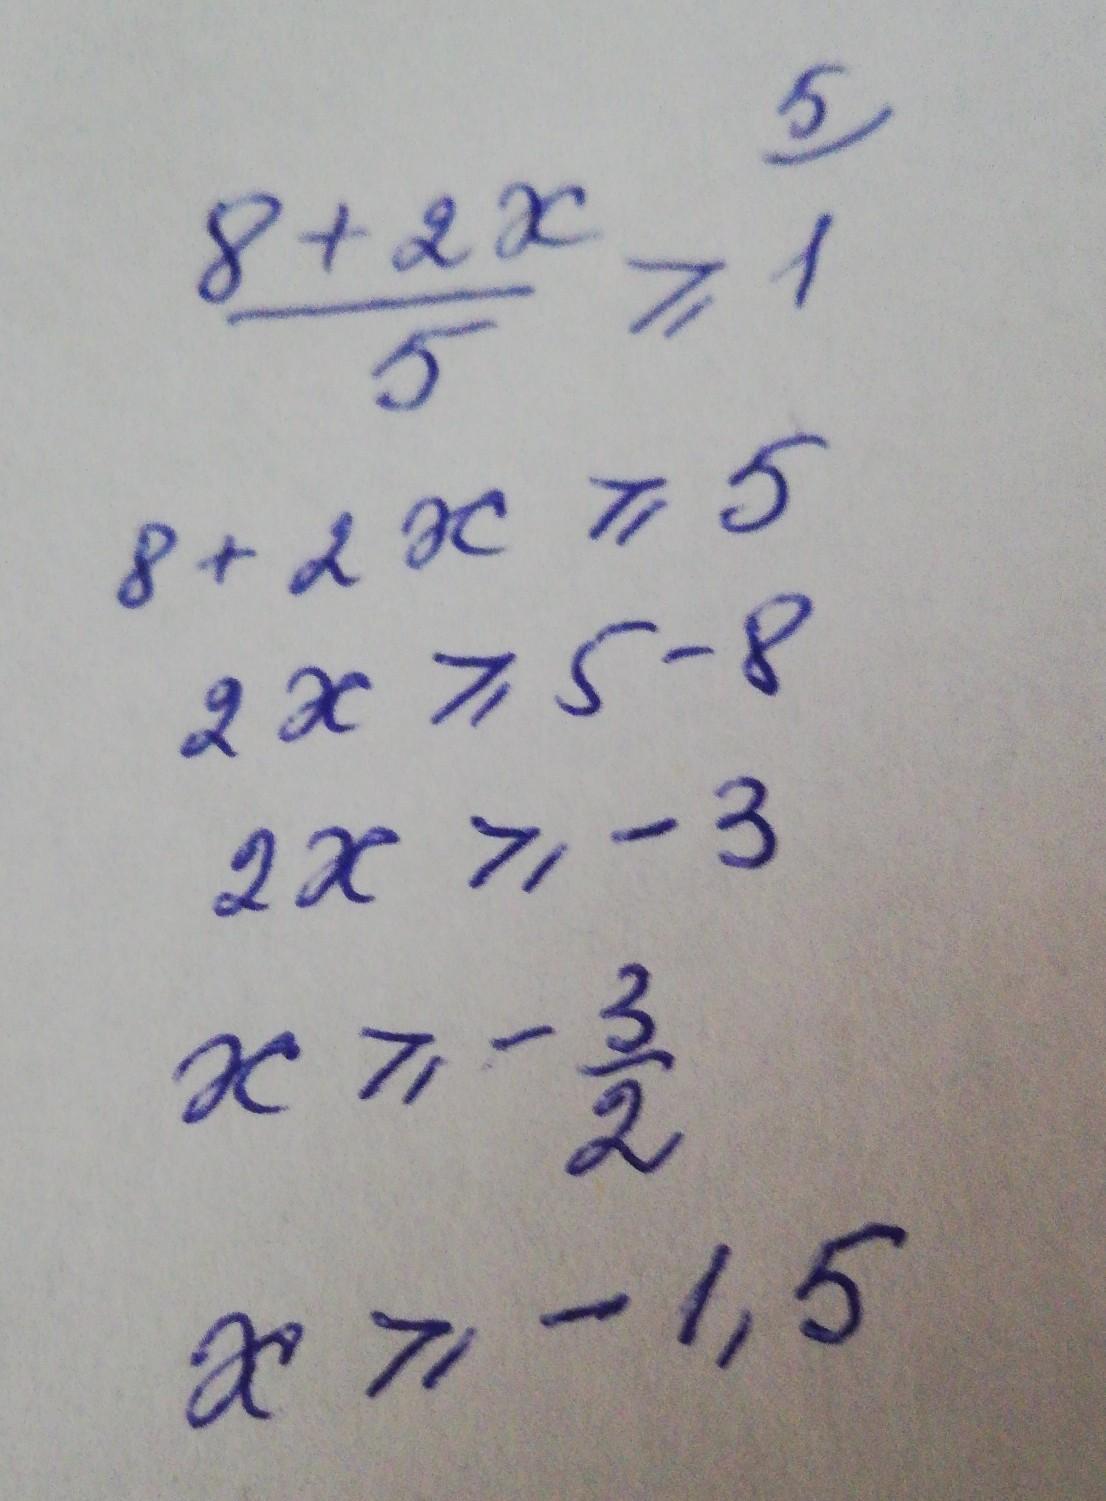 5
8 + 2x / 5 ⩾ 1
8 + 2x ⩾ 5
2x ⩾ 5 - 8
2x ⩾ - 3
x ⩾ - 3/2
x ⩾ - 1,5